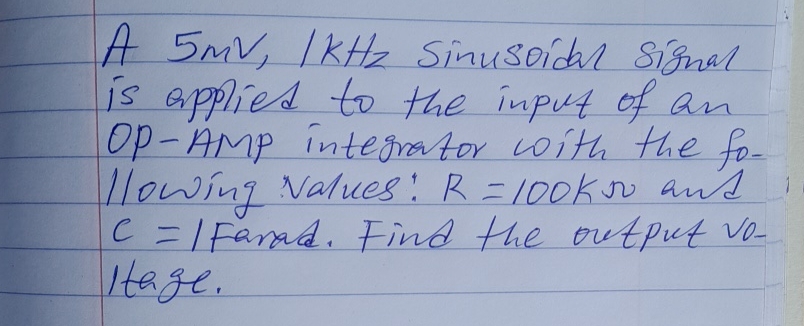 A 5mV, 1kHz Sinusoidal signal
is applied to the input of an
OP-AMP integrator with the fo-
llowing values: R = 100KΩ and
C = 1Farad. Find the output vo-
ltage.